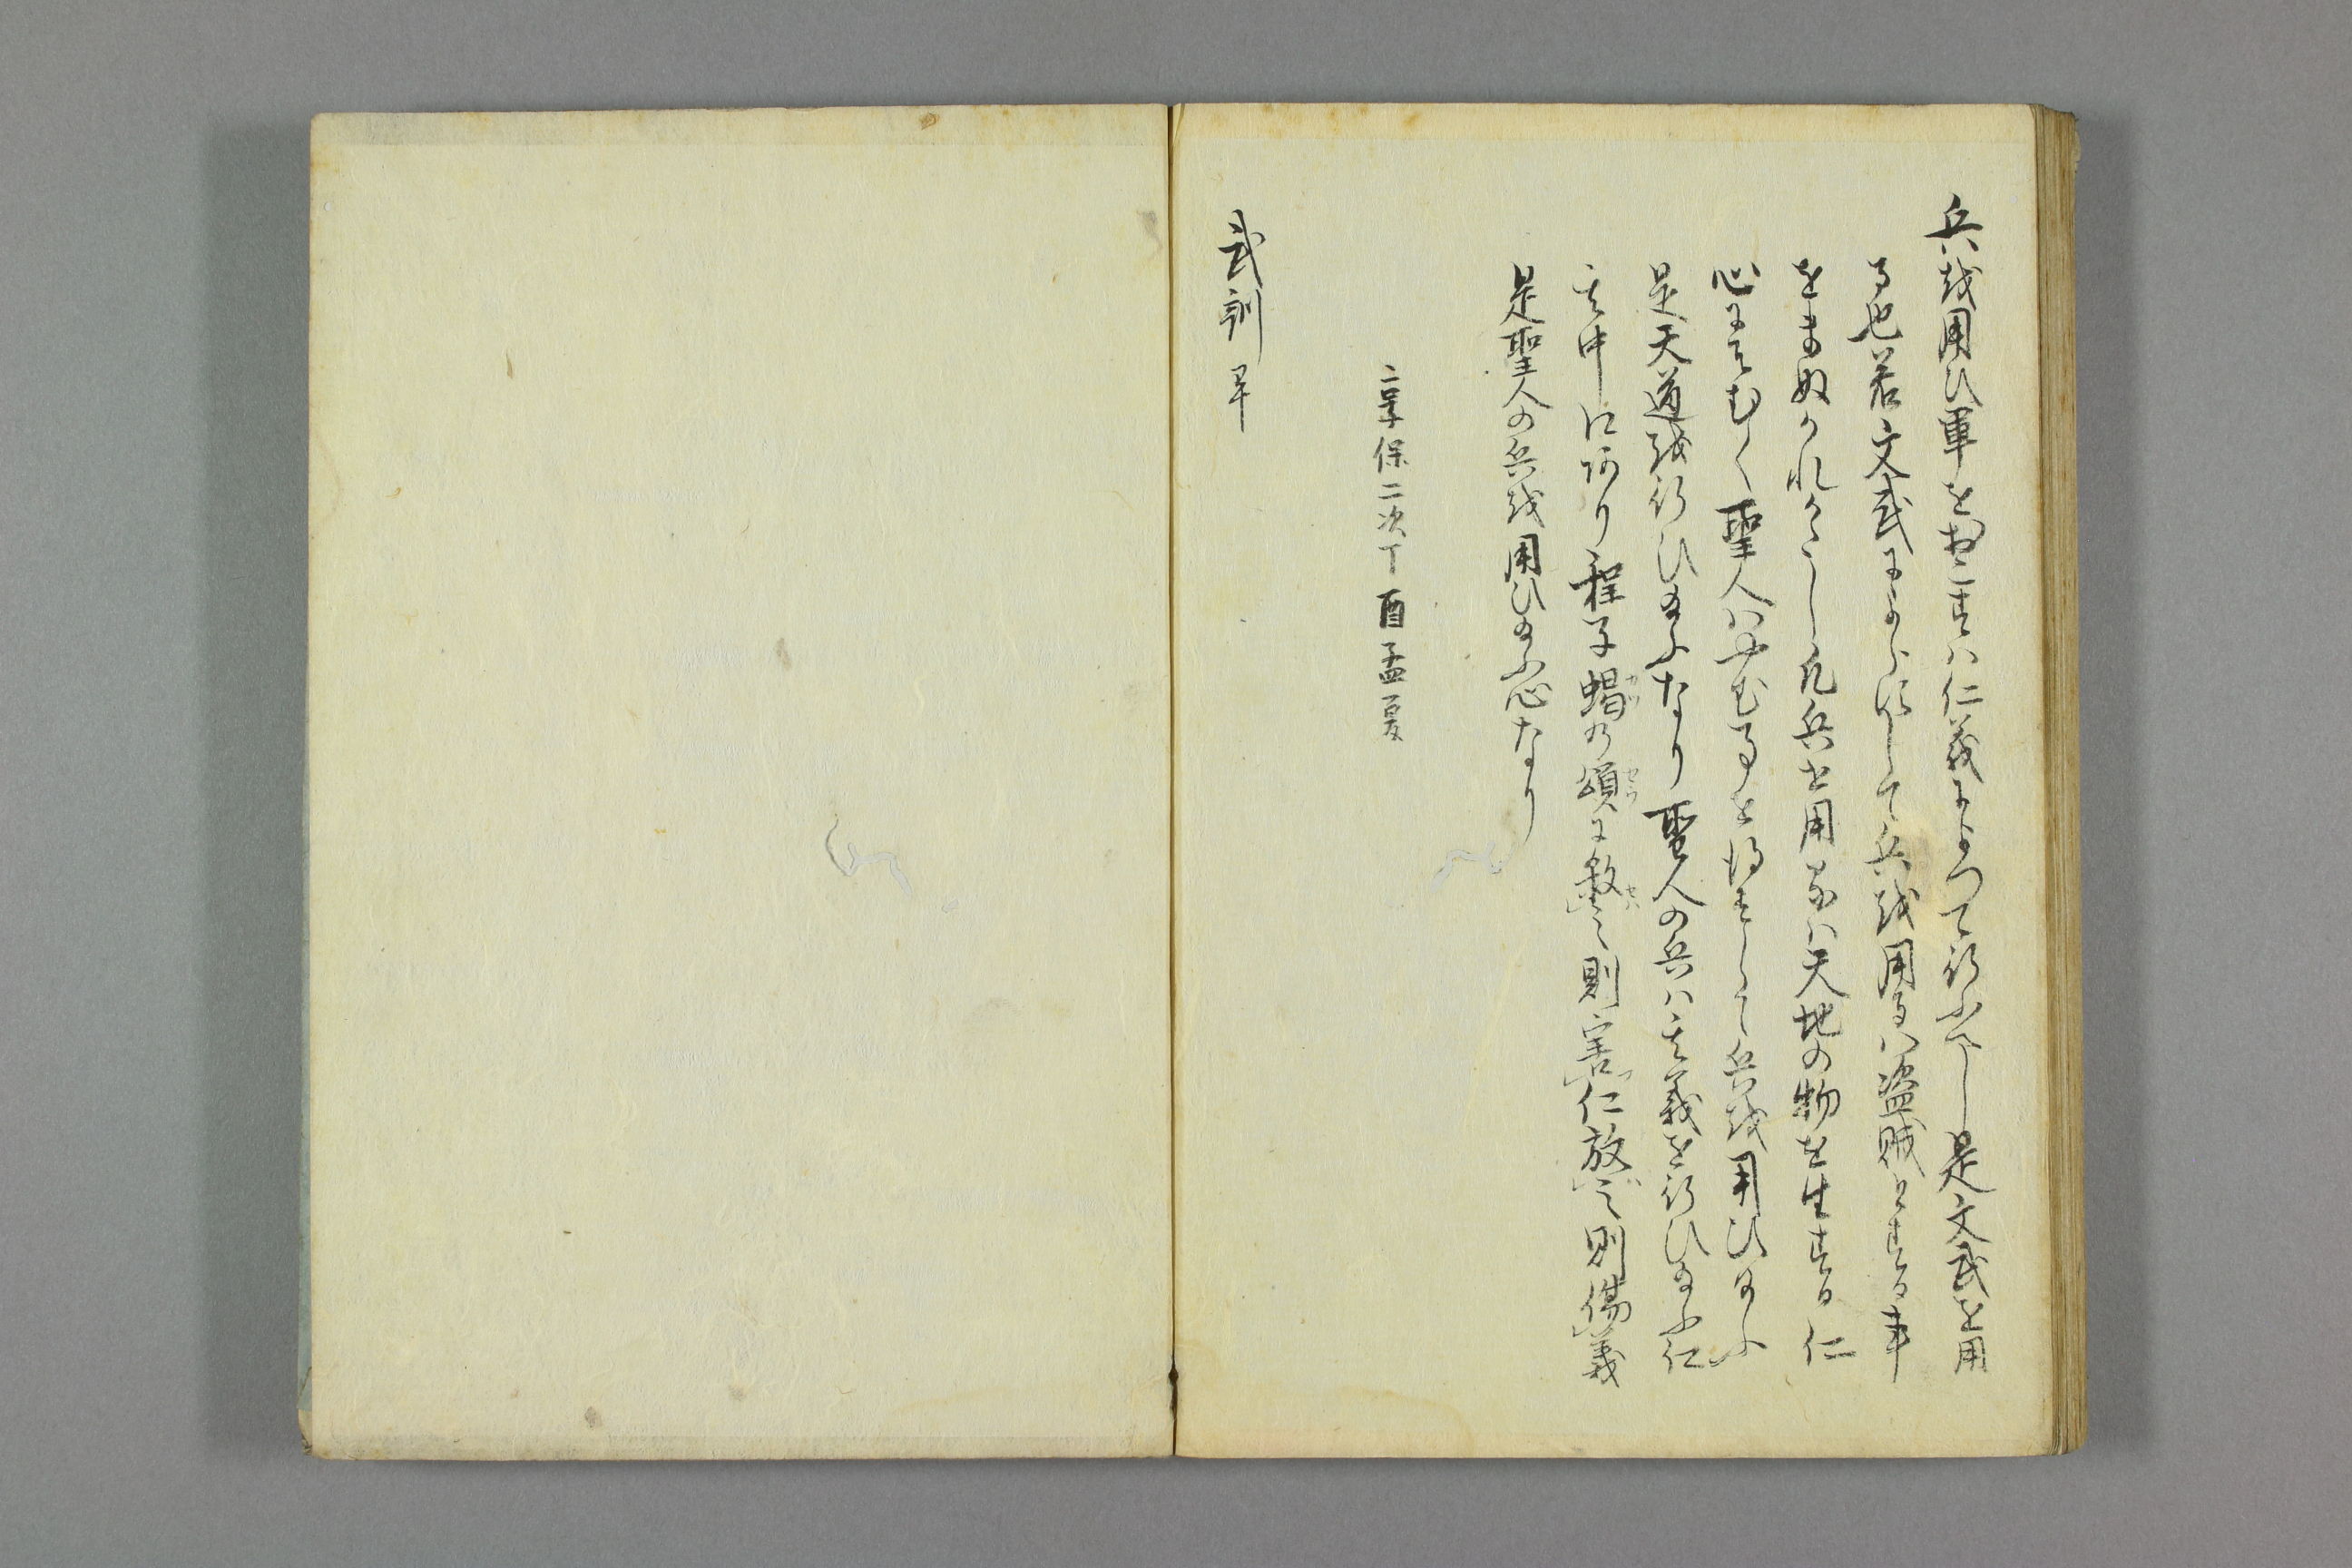 兵を用ひ軍をおこすハ仁義によつて行ふへし是文武を用
る也若文武によらすして兵を用るハ盗賊とする事
をまぬかれかたし凡兵を用るハ天地の物を生する仁
心にそむく聖人ハやむ事を得すして兵を用ひ給ふ
是天道を行ひ給ふなり聖人の兵ハ其義を行ひ給ふ仁
其中にあり程子蝎の頌に殺之則害仁放之則傷義
是聖人の兵を用ひ給ふ心なり
享保二次丁酉孟夏
武訓畢